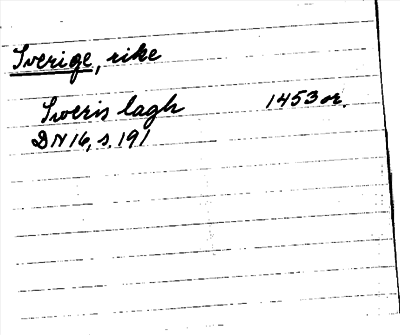 Sverige, rike
Sweris lagh 1453 or.
DN 16, s. 191